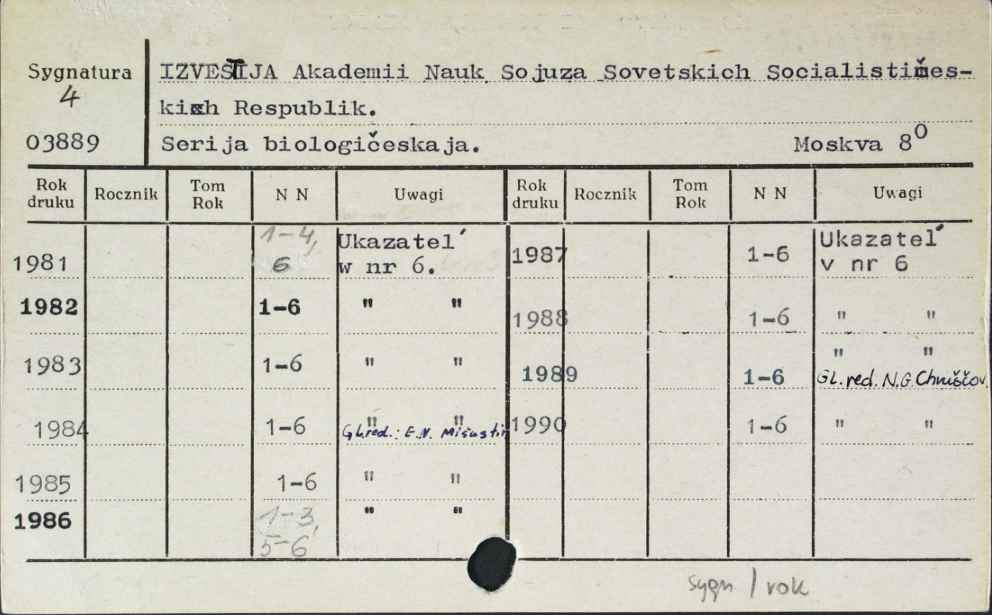 Sygnatura
4
03889
IZVESTIJA Akademii Nauk Sojuza Sovetskich Socialističes-
kich Respublik.
Serija biologičeskaja. Moskva 8⁰
Rok druku Rocznik Tom Rok N N Uwagi Rok druku Rocznik Tom Rok N N Uwagi
1981 1-4, 6 Ukazatel′ w nr 6.
1982 1-6 " "
1983 1-6 " "
1984 1-6 " "
Gł.red.: E.N. Mišustin
1985 1-6 " "
1986 1-3, 5-6 " "
1987 1-6 Ukazatel′ v nr 6
1988 1-6 " "
1989 1-6 " "
GL. red. N.G. Chruščov.
1990 1-6 " "
sygn / rok